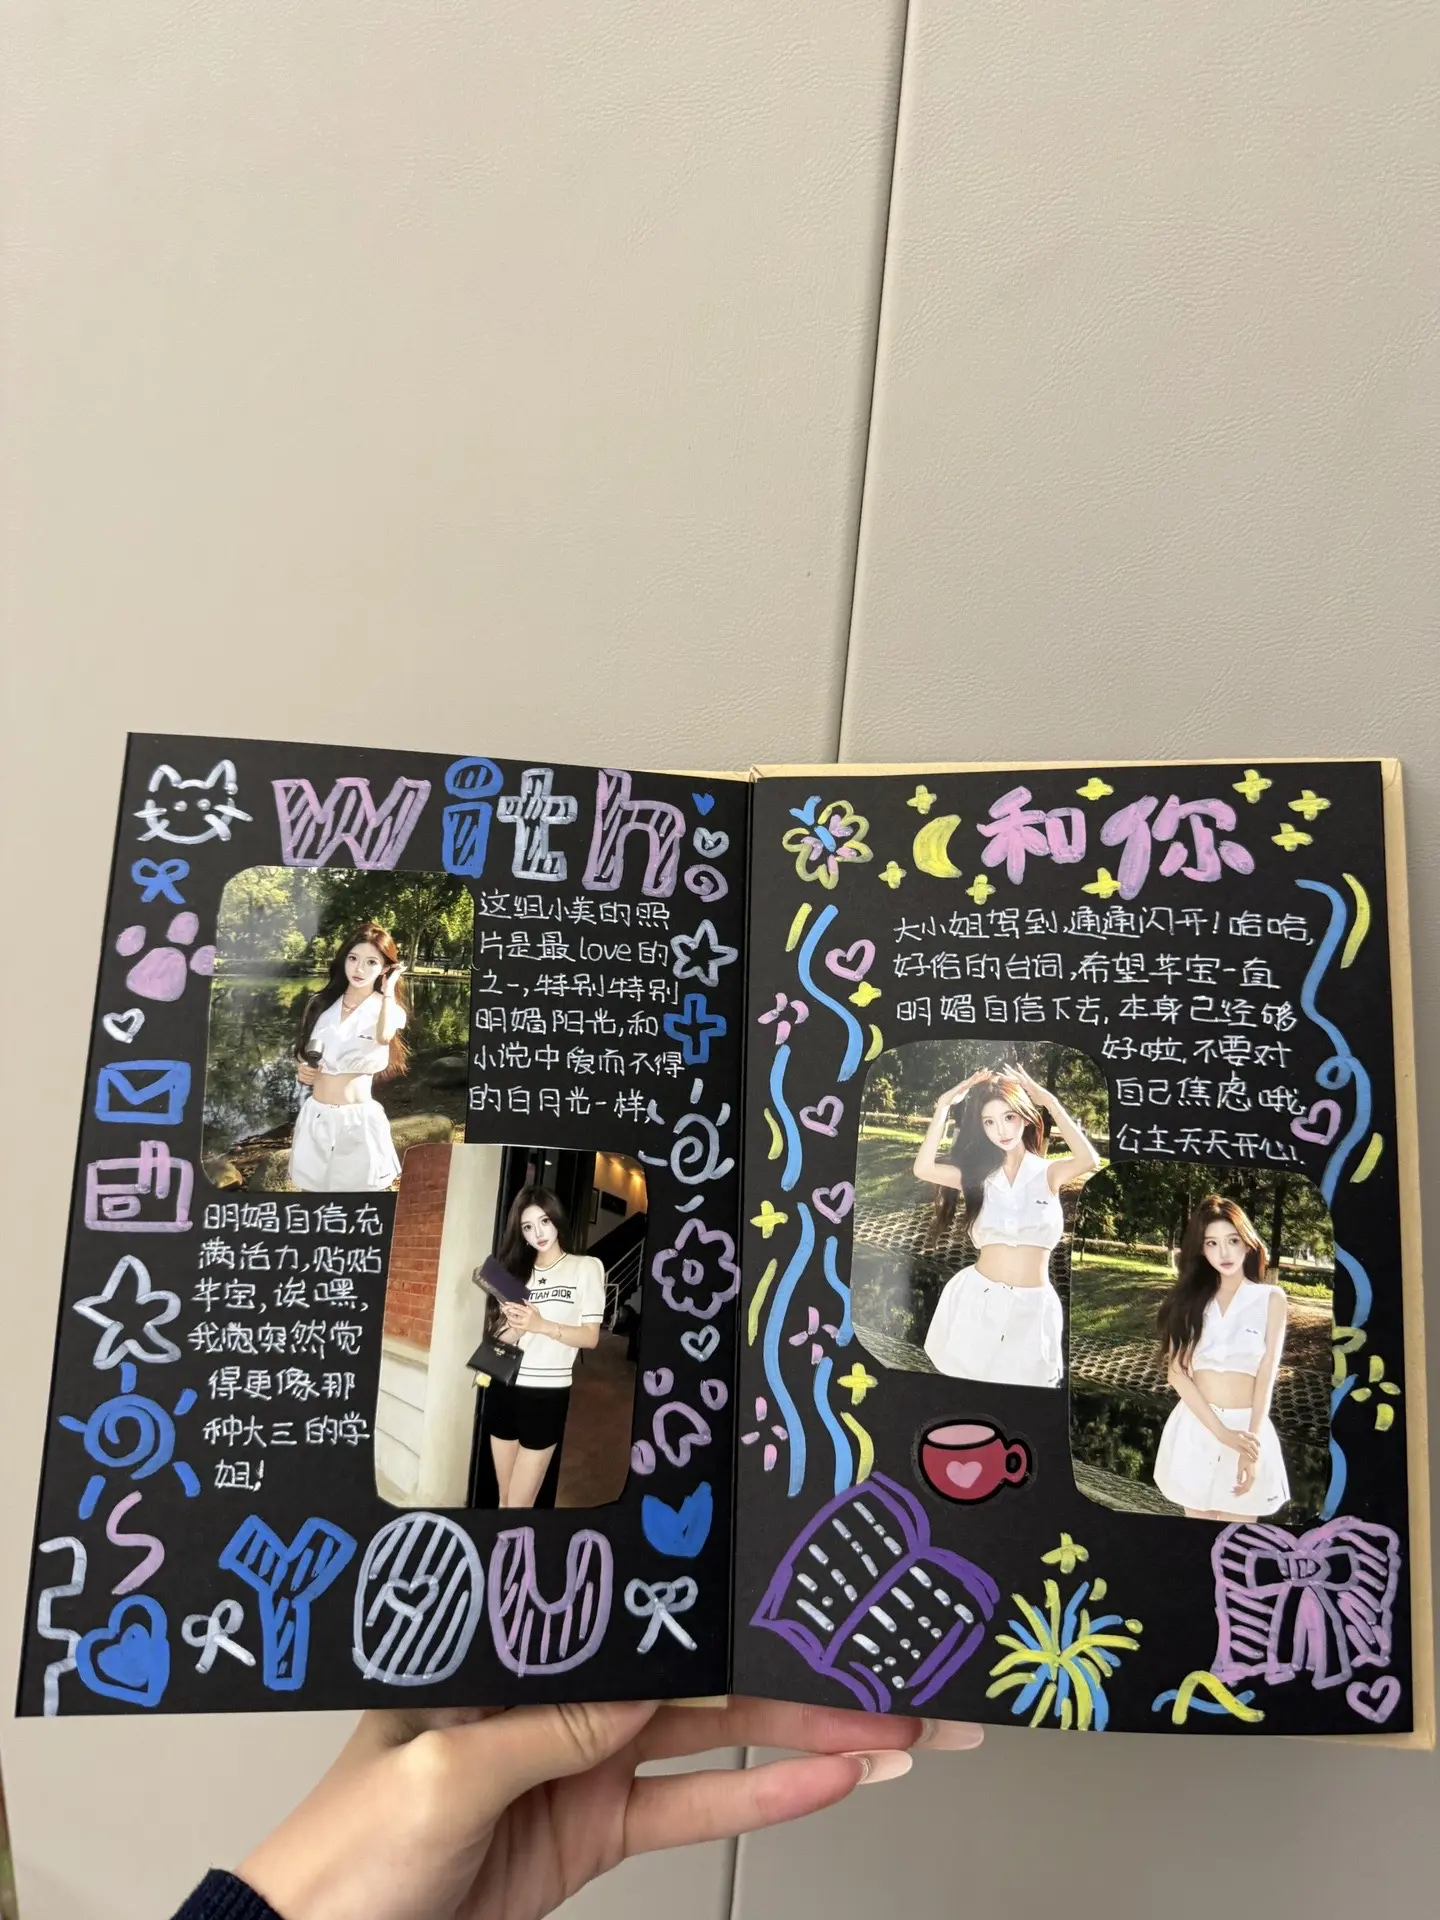 with
这组小美的照
片是最love的
之一,特别特别
明媚阳光,和
小说中爱而不得
的白月光一样,
明媚自信,充
满活力,贴贴
芊宝,诶嘿,
我感突然觉
得更像那
种大三的学
姐!
TIAN DIOR
YOU
和你
大小姐驾到,通通闪开!哈哈,
好俗的台词,希望芊宝一直
明媚自信下去,本身已经够
好啦,不要对
自己焦虑哦,
公主天天开心!